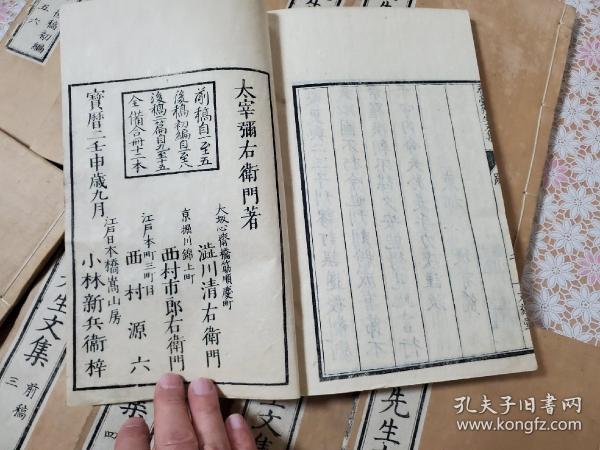 太宰彌右衛門著
前稿自一至五
後稿初編自一至八
後稿二篇自九至十五
全備合冊十二本
大坂心齋橋筋順慶町
澁川清右衛門
京堀川錦上町
西村市郎右衛門
江戸本町三町目
西村源六
寶暦二壬申歳九月
江戸日本橋嵩山房
小林新兵衛梓
稿初編
五六
生文集
前稿
三
四
生文集
先生文
孔夫子旧书网
www.kongfz.com